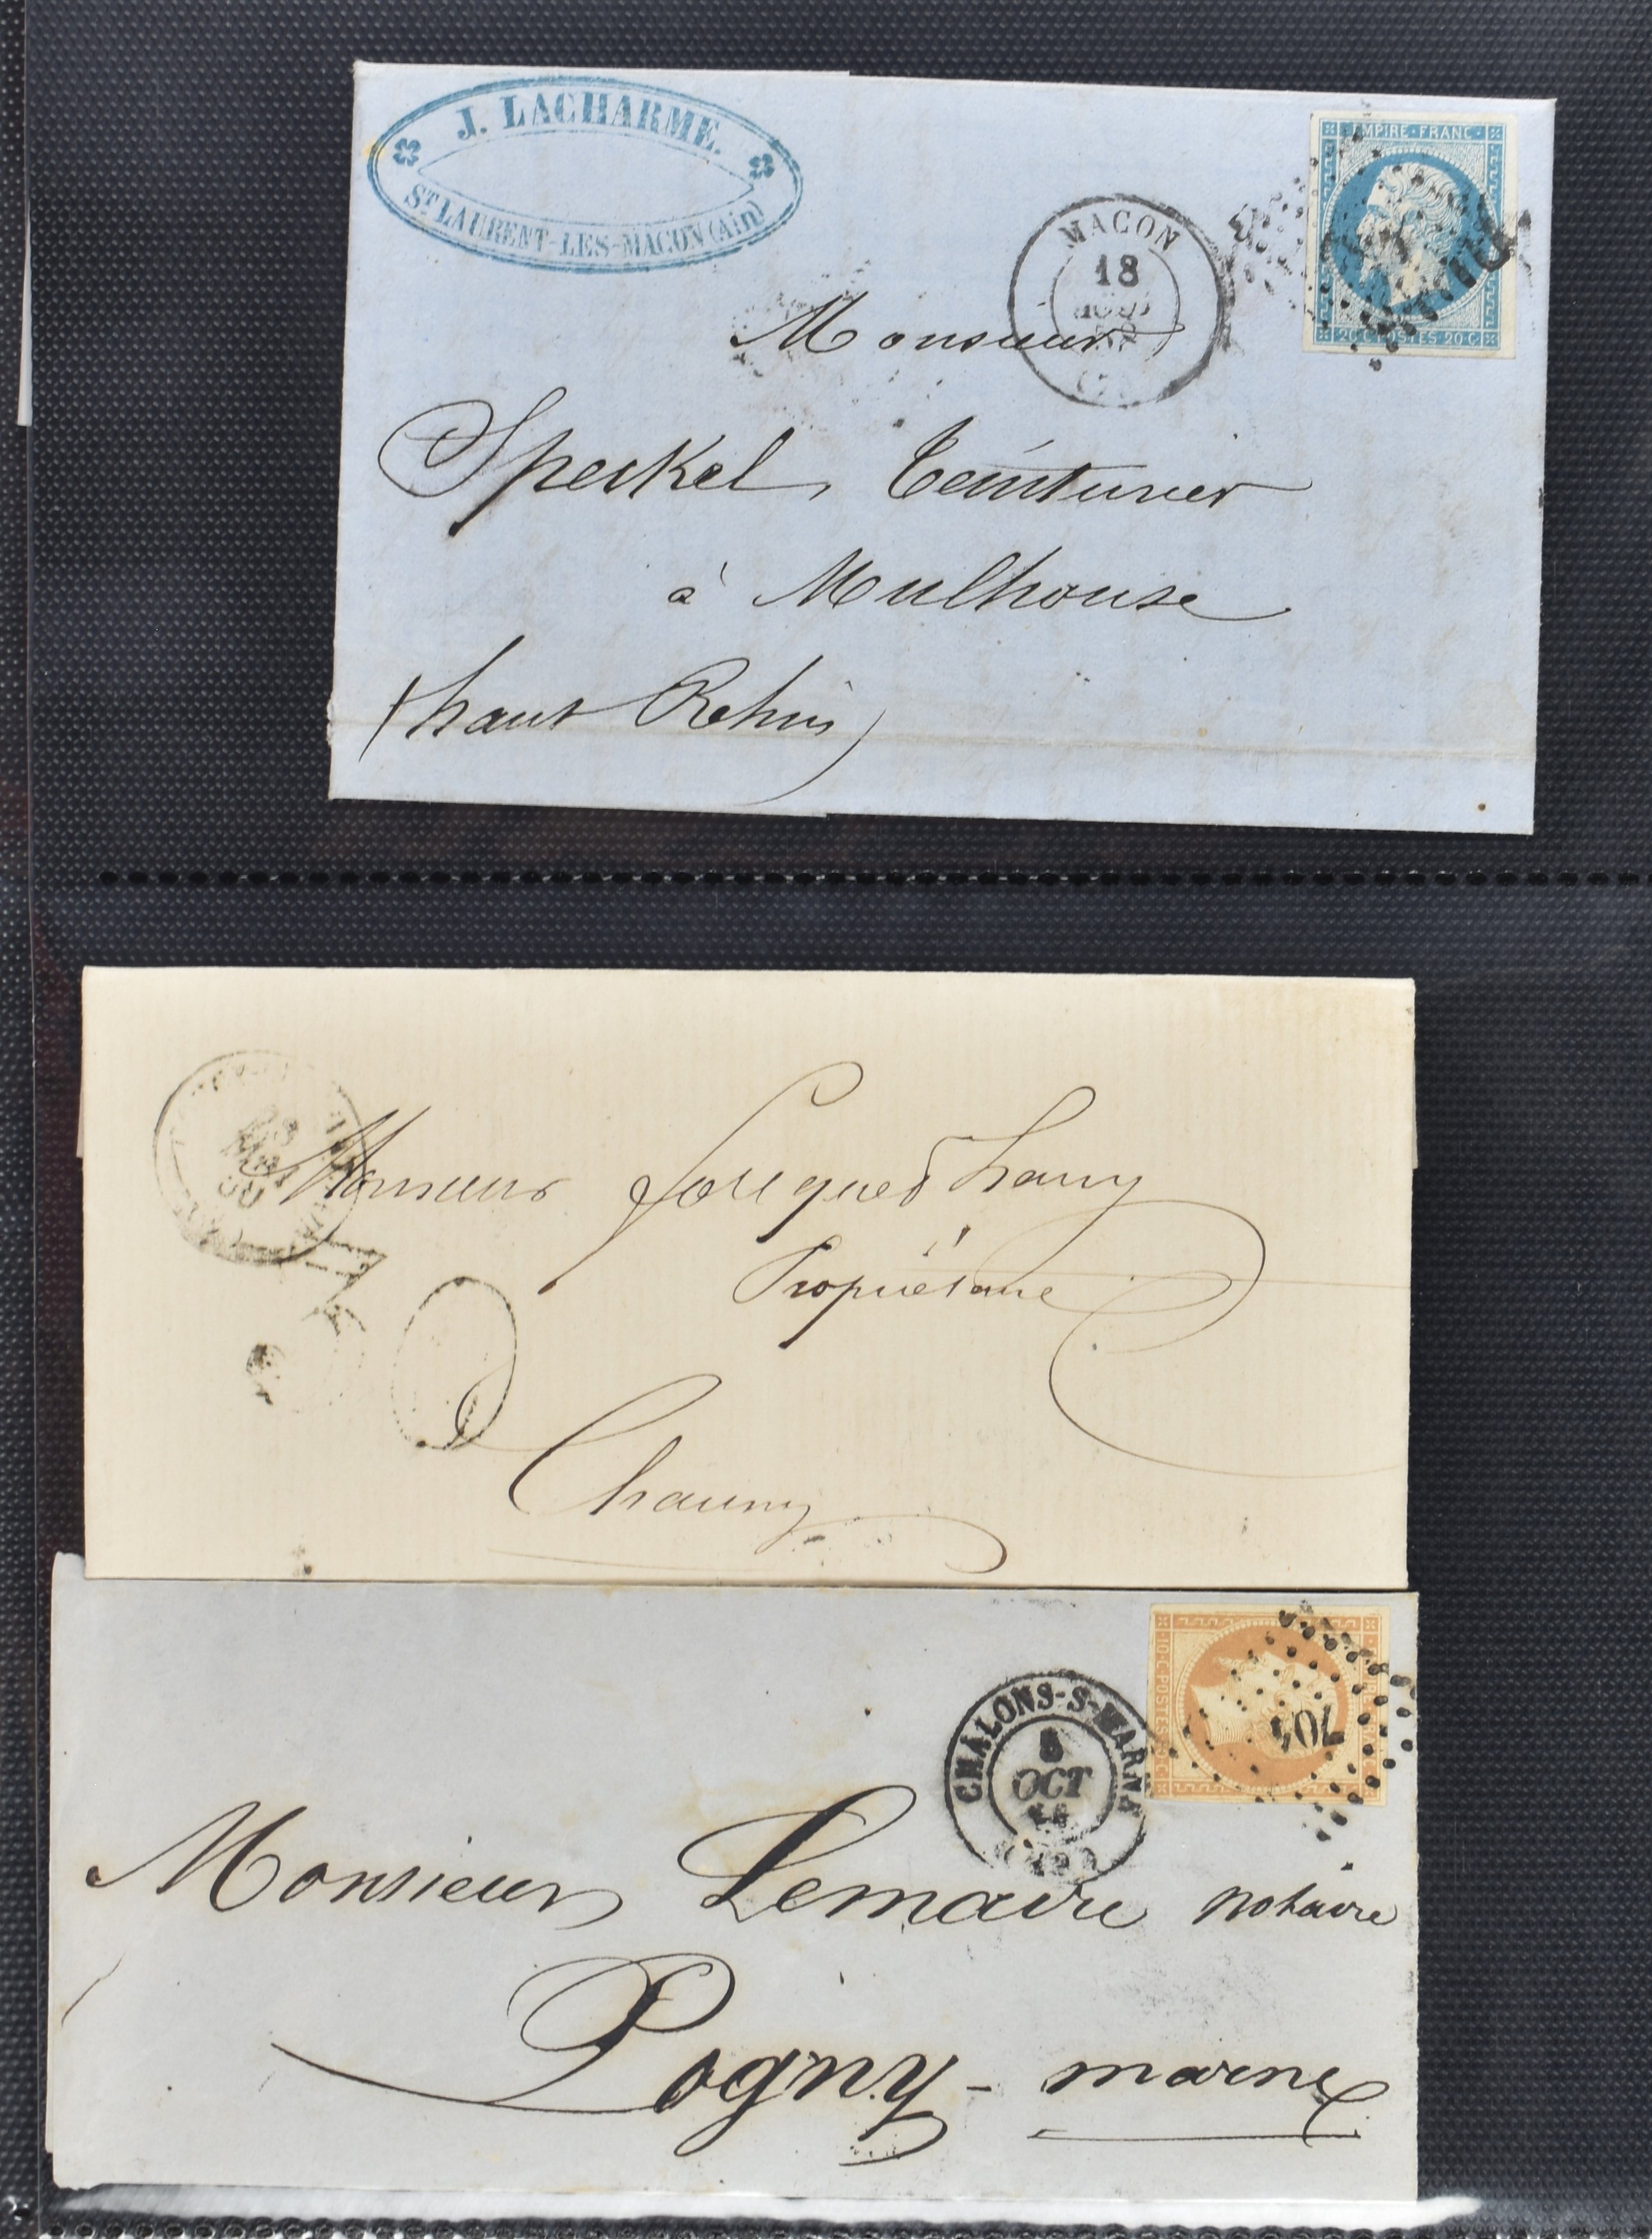 J. LACHARME.
ST LAURENT-LES-MACON (Ain)
MACON
18
EMPIRE·FRANC·
20·C POSTES 20·C
Monsieur
Speckel, teinturier
à Mulhouse
(haut Rehin)
MAI
Monsieur Jacques
Propriétaire
Chauny
CHALONS-S-MARNE
8
OCT
10·C·POSTES
704
Monsieur Lemaire notaire
Pogny - marne